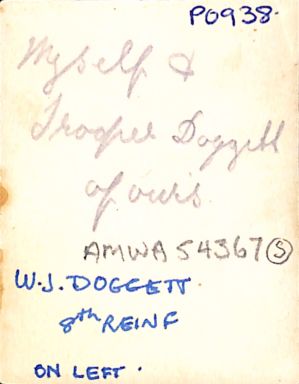 P0938.
Myself &
Trooper Doggett
of ours.
AMWA 54367 (S)
W.J. DOGGETT.
8th REINF
ON LEFT.